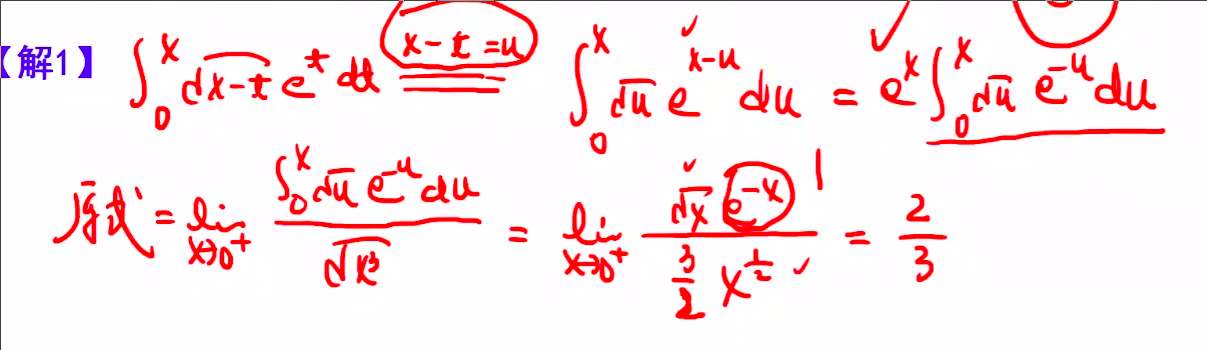 【解1】 ∫₀ˣ √(x-t) eᵗ dt (x-t=u) ∫₀ˣ √u e^(x-u) du = eˣ ∫₀ˣ √u e^(-u) du
原式 = lim_(x→0⁺) (∫₀ˣ √u e^(-u) du)/(√(x³)) = lim_(x→0⁺) (√x e^(-x))/((3/2) x^(1/2)) = 2/3